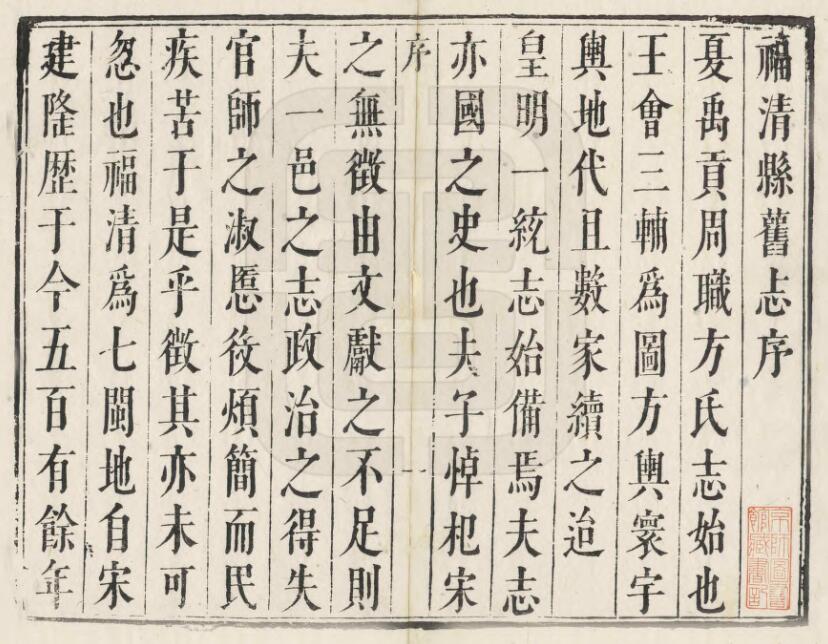 福清縣舊志序
夏禹貢周職方氏志始也
王會三輔爲圖方輿寰宇
輿地代且數家續之迨
皇明一統志始備焉夫志
亦國之史也夫子悼杞宋
序
一
之無徵由文獻之不足則
夫一邑之志政治之得失
官師之淑慝役煩簡而民
疾苦于是乎徵其亦未可
忽也福清爲七閩地自宋
建隆歷于今五百有餘年